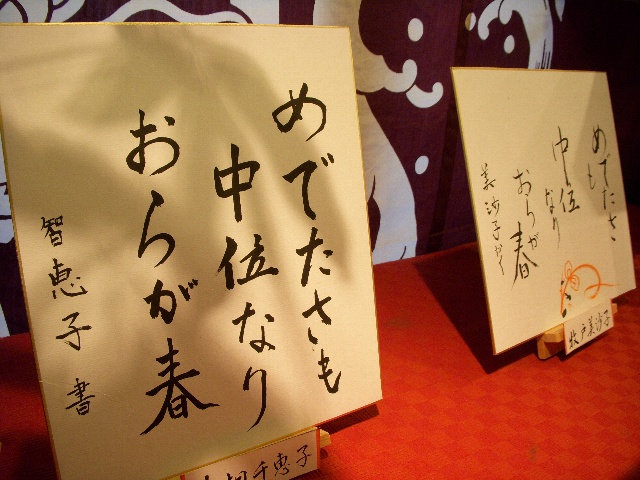 めでたさも
中位なり
おらが春
智恵子書
千恵子
めでたさ
も
中位
なり
おらが
春
美沙子かく
牧戸美沙子